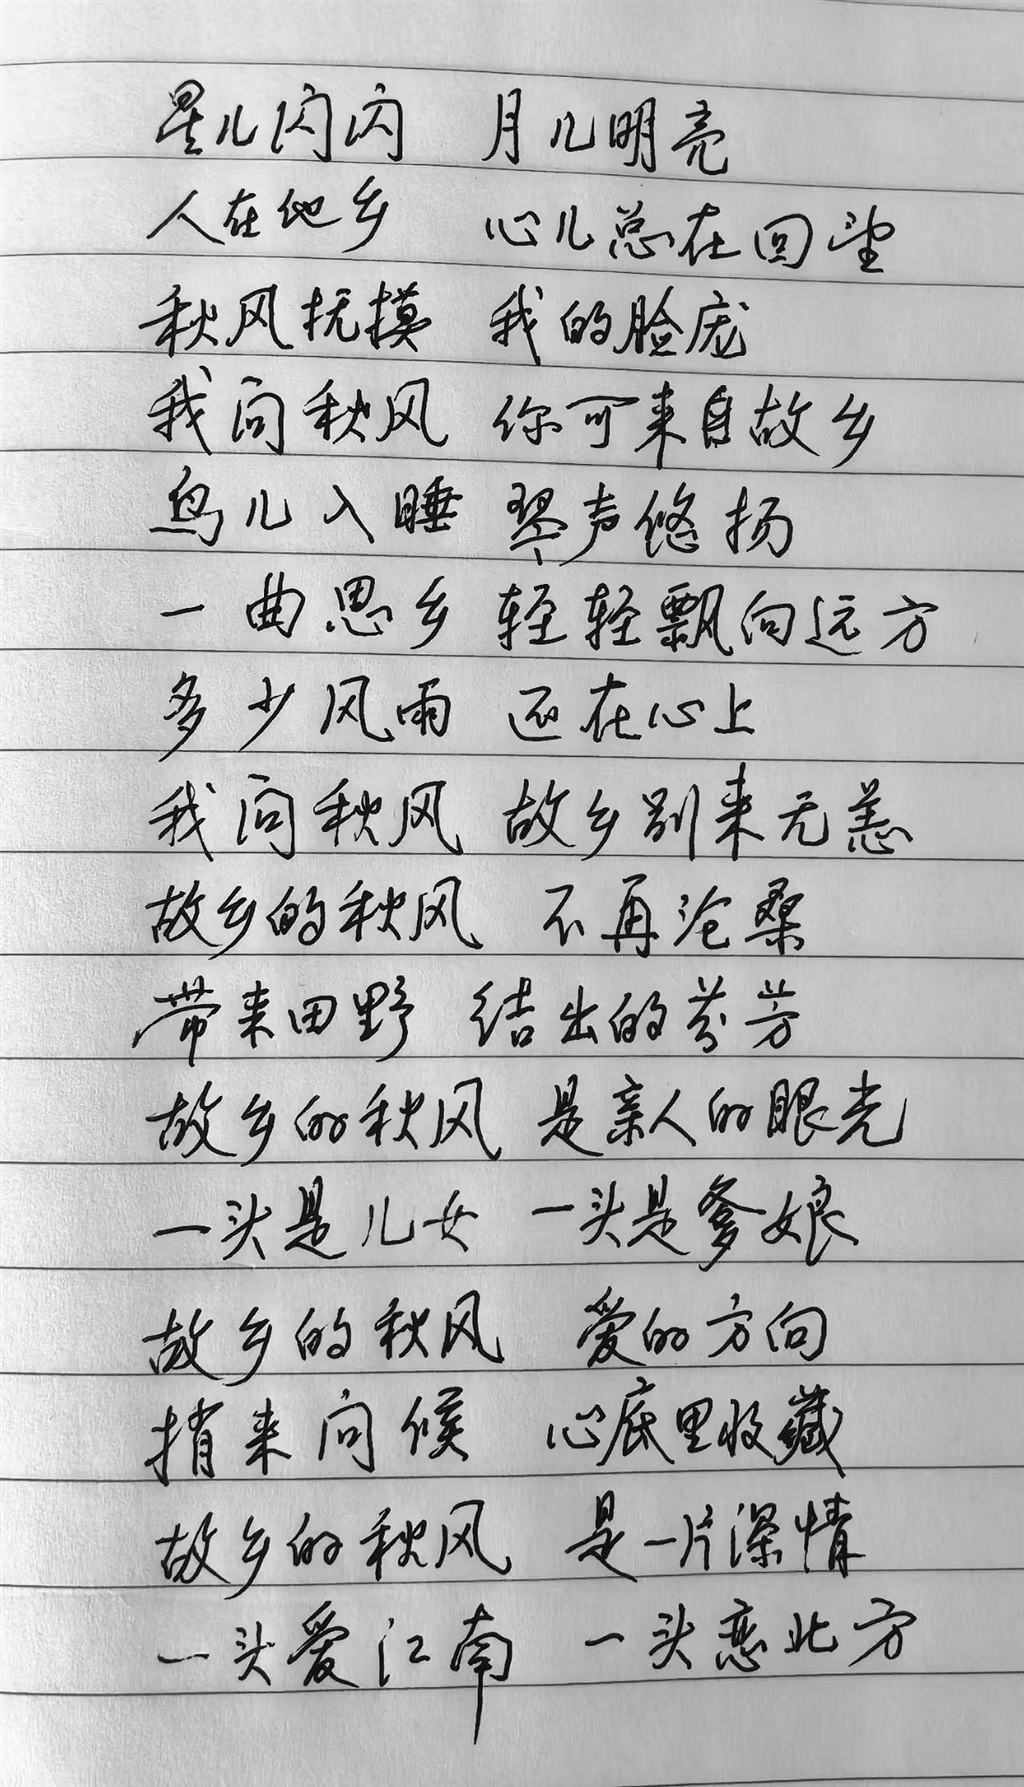 星儿闪闪 月儿明亮
人在他乡 心儿总在回望
秋风抚摸 我的脸庞
我问秋风 你可来自故乡
鸟儿入睡 琴声悠扬
一曲思乡 轻轻飘向远方
多少风雨 还在心上
我问秋风 故乡别来无恙
故乡的秋风 不再沧桑
带来田野 结出的芬芳
故乡的秋风 是亲人的眼光
一头是儿女 一头是爹娘
故乡的秋风 爱的方向
捎来问候 心底里收藏
故乡的秋风 是一片深情
一头爱江南 一头恋北方